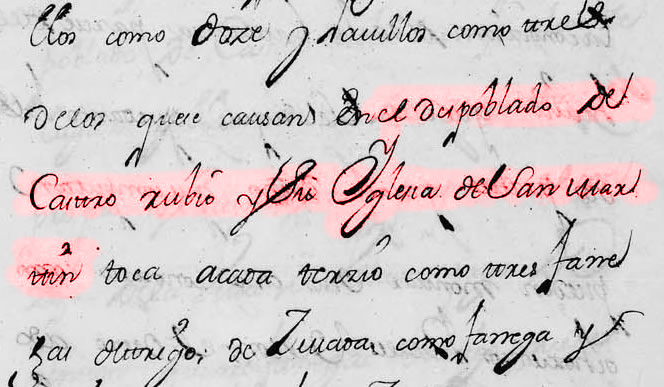 llos como doze y lauillos como tres
delos quese causan en el despoblado de
Castro rubio y su Yglesia de San Mar
tin toca acada terzio como tres fane
gas detrigo, de Zevada como fanega y